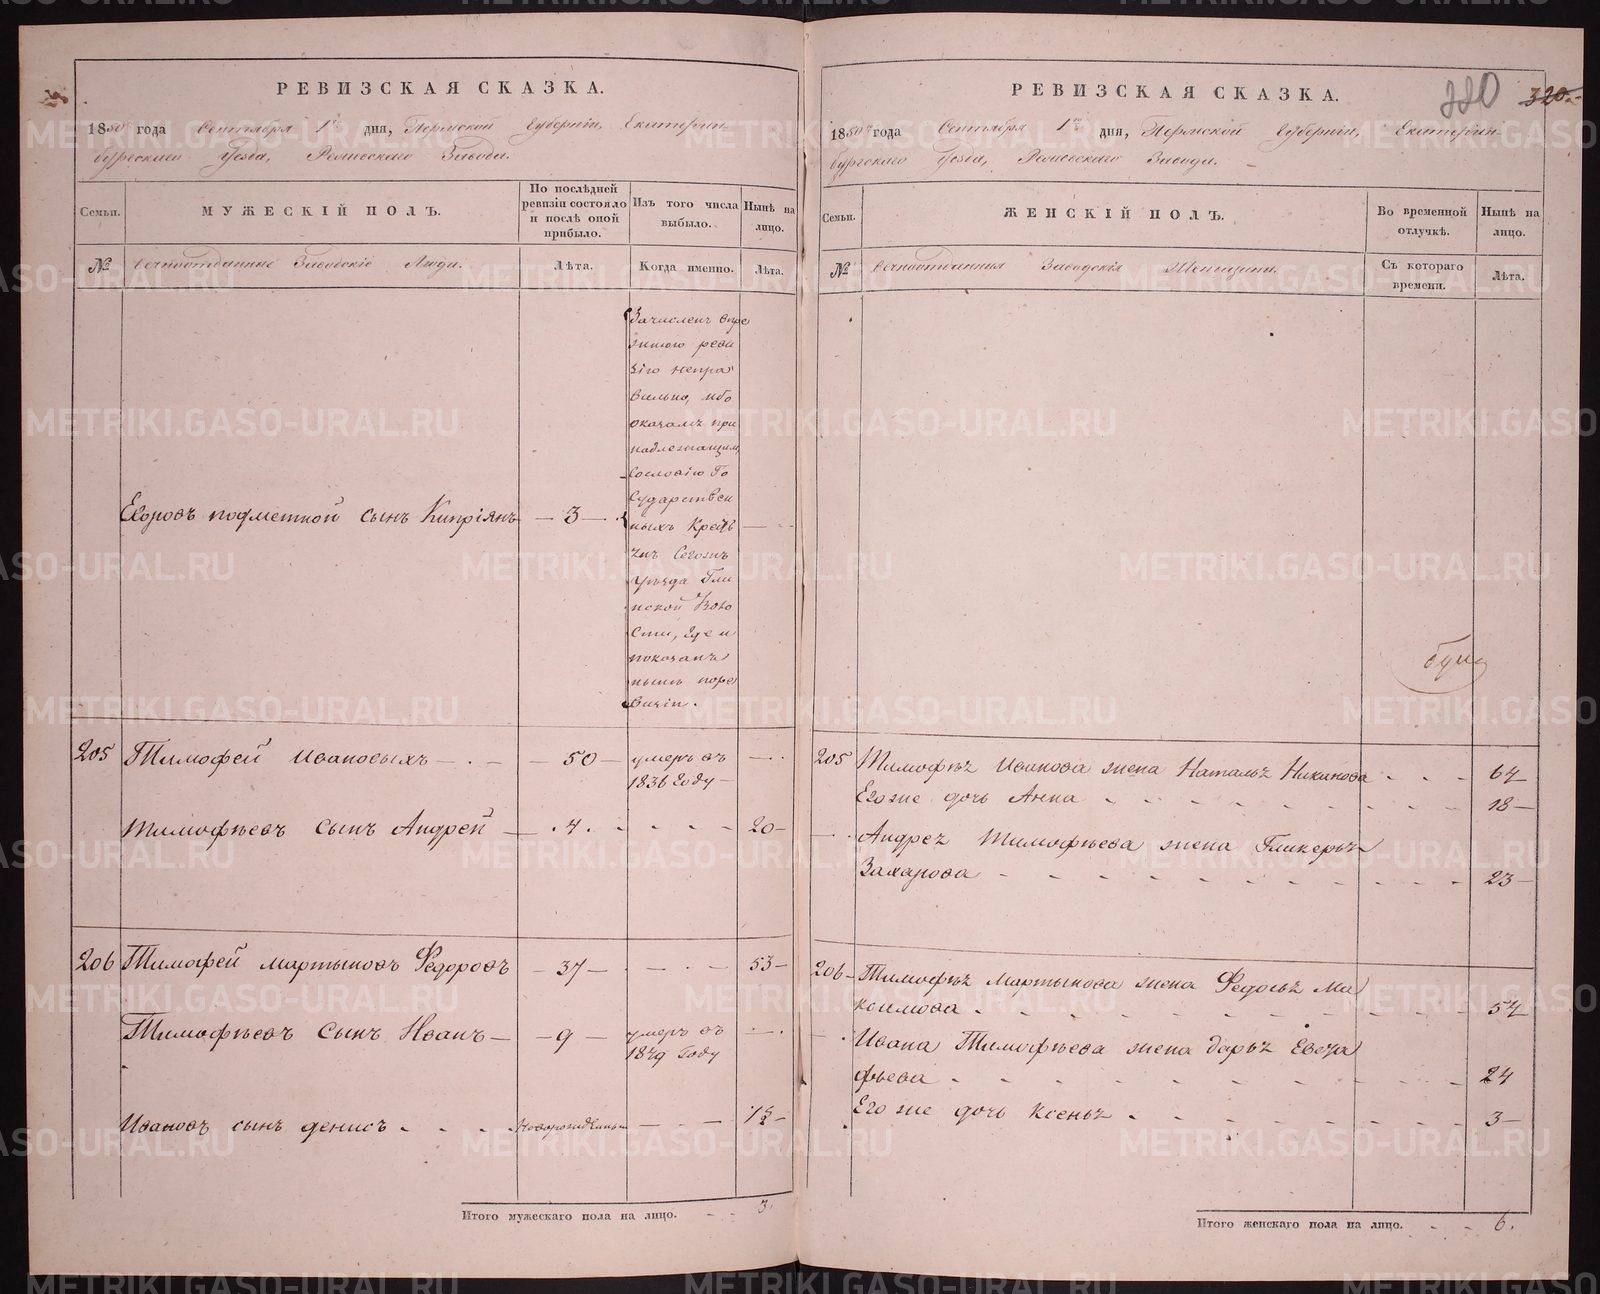 РЕВИЗСКАЯ СКАЗКА.
1850 года Сентября 1 дня, Пермской Губерніи, Екатерин-
бургскаго Уезда, Режевскаго Завода.
Семьи.
МУЖЕСКІЙ ПОЛЪ.
По послѣдней ревизіи состояло и послѣ оной прибыло.
Изъ того числа выбыло.
Нынѣ на лицо.
№
Вечноотданные Заводскіе Люди.
Лѣта.
Когда именно.
Лѣта.
Зачисленъ впре
жнюю реви
зію непра
вильно, ибо
оказалъ при
надлежащим
сословію Го
сударствен
Егоровъ подметной сынъ Кипріянъ — 3 —
ныхъ Крестъ
янъ Сегожъ
уѣзда Гли
нской Воло
сти, где и
показанъ
нынѣ поре
визіи.
205 Тимофей Ивановыхъ — 50 — умеръ въ
1836 Году
Тимофѣевъ сынъ Андрей — 4. 20
206 Тимофей Мартыновъ Федоровъ — 37 — 53
Тимофѣевъ сынъ Иванъ — 9 — умеръ въ
1849 Году
Ивановъ сынъ Денисъ Новорожденный 1½
Итого мужескаго пола на лицо. 3.
РЕВИЗСКАЯ СКАЗКА.
320
1850 года Сентября 1 дня, Пермской Губерніи, Екатерин-
бургскаго Уезда, Режевскаго Завода.
Семьи.
ЖЕНСКІЙ ПОЛЪ.
Во временной отлучкѣ.
Нынѣ на лицо.
№
Вечноотданныя Заводскія Женщины.
Съ котораго времени.
Лѣта.
205 Тимофѣя Иванова жена Наталья Никонова 64
Его же дочь Анна 18
Андрея Тимофѣева жена Гликерья
Захарова 23
206 Тимофѣя Мартынова жена Федосья Ма
ксимова 54
Ивана Тимофѣева жена Дарья Евста
фьева 24
Его же дочь Ксенья 3
Итого женскаго пола на лицо. 6.
METRIKI.GASO-URAL.RU